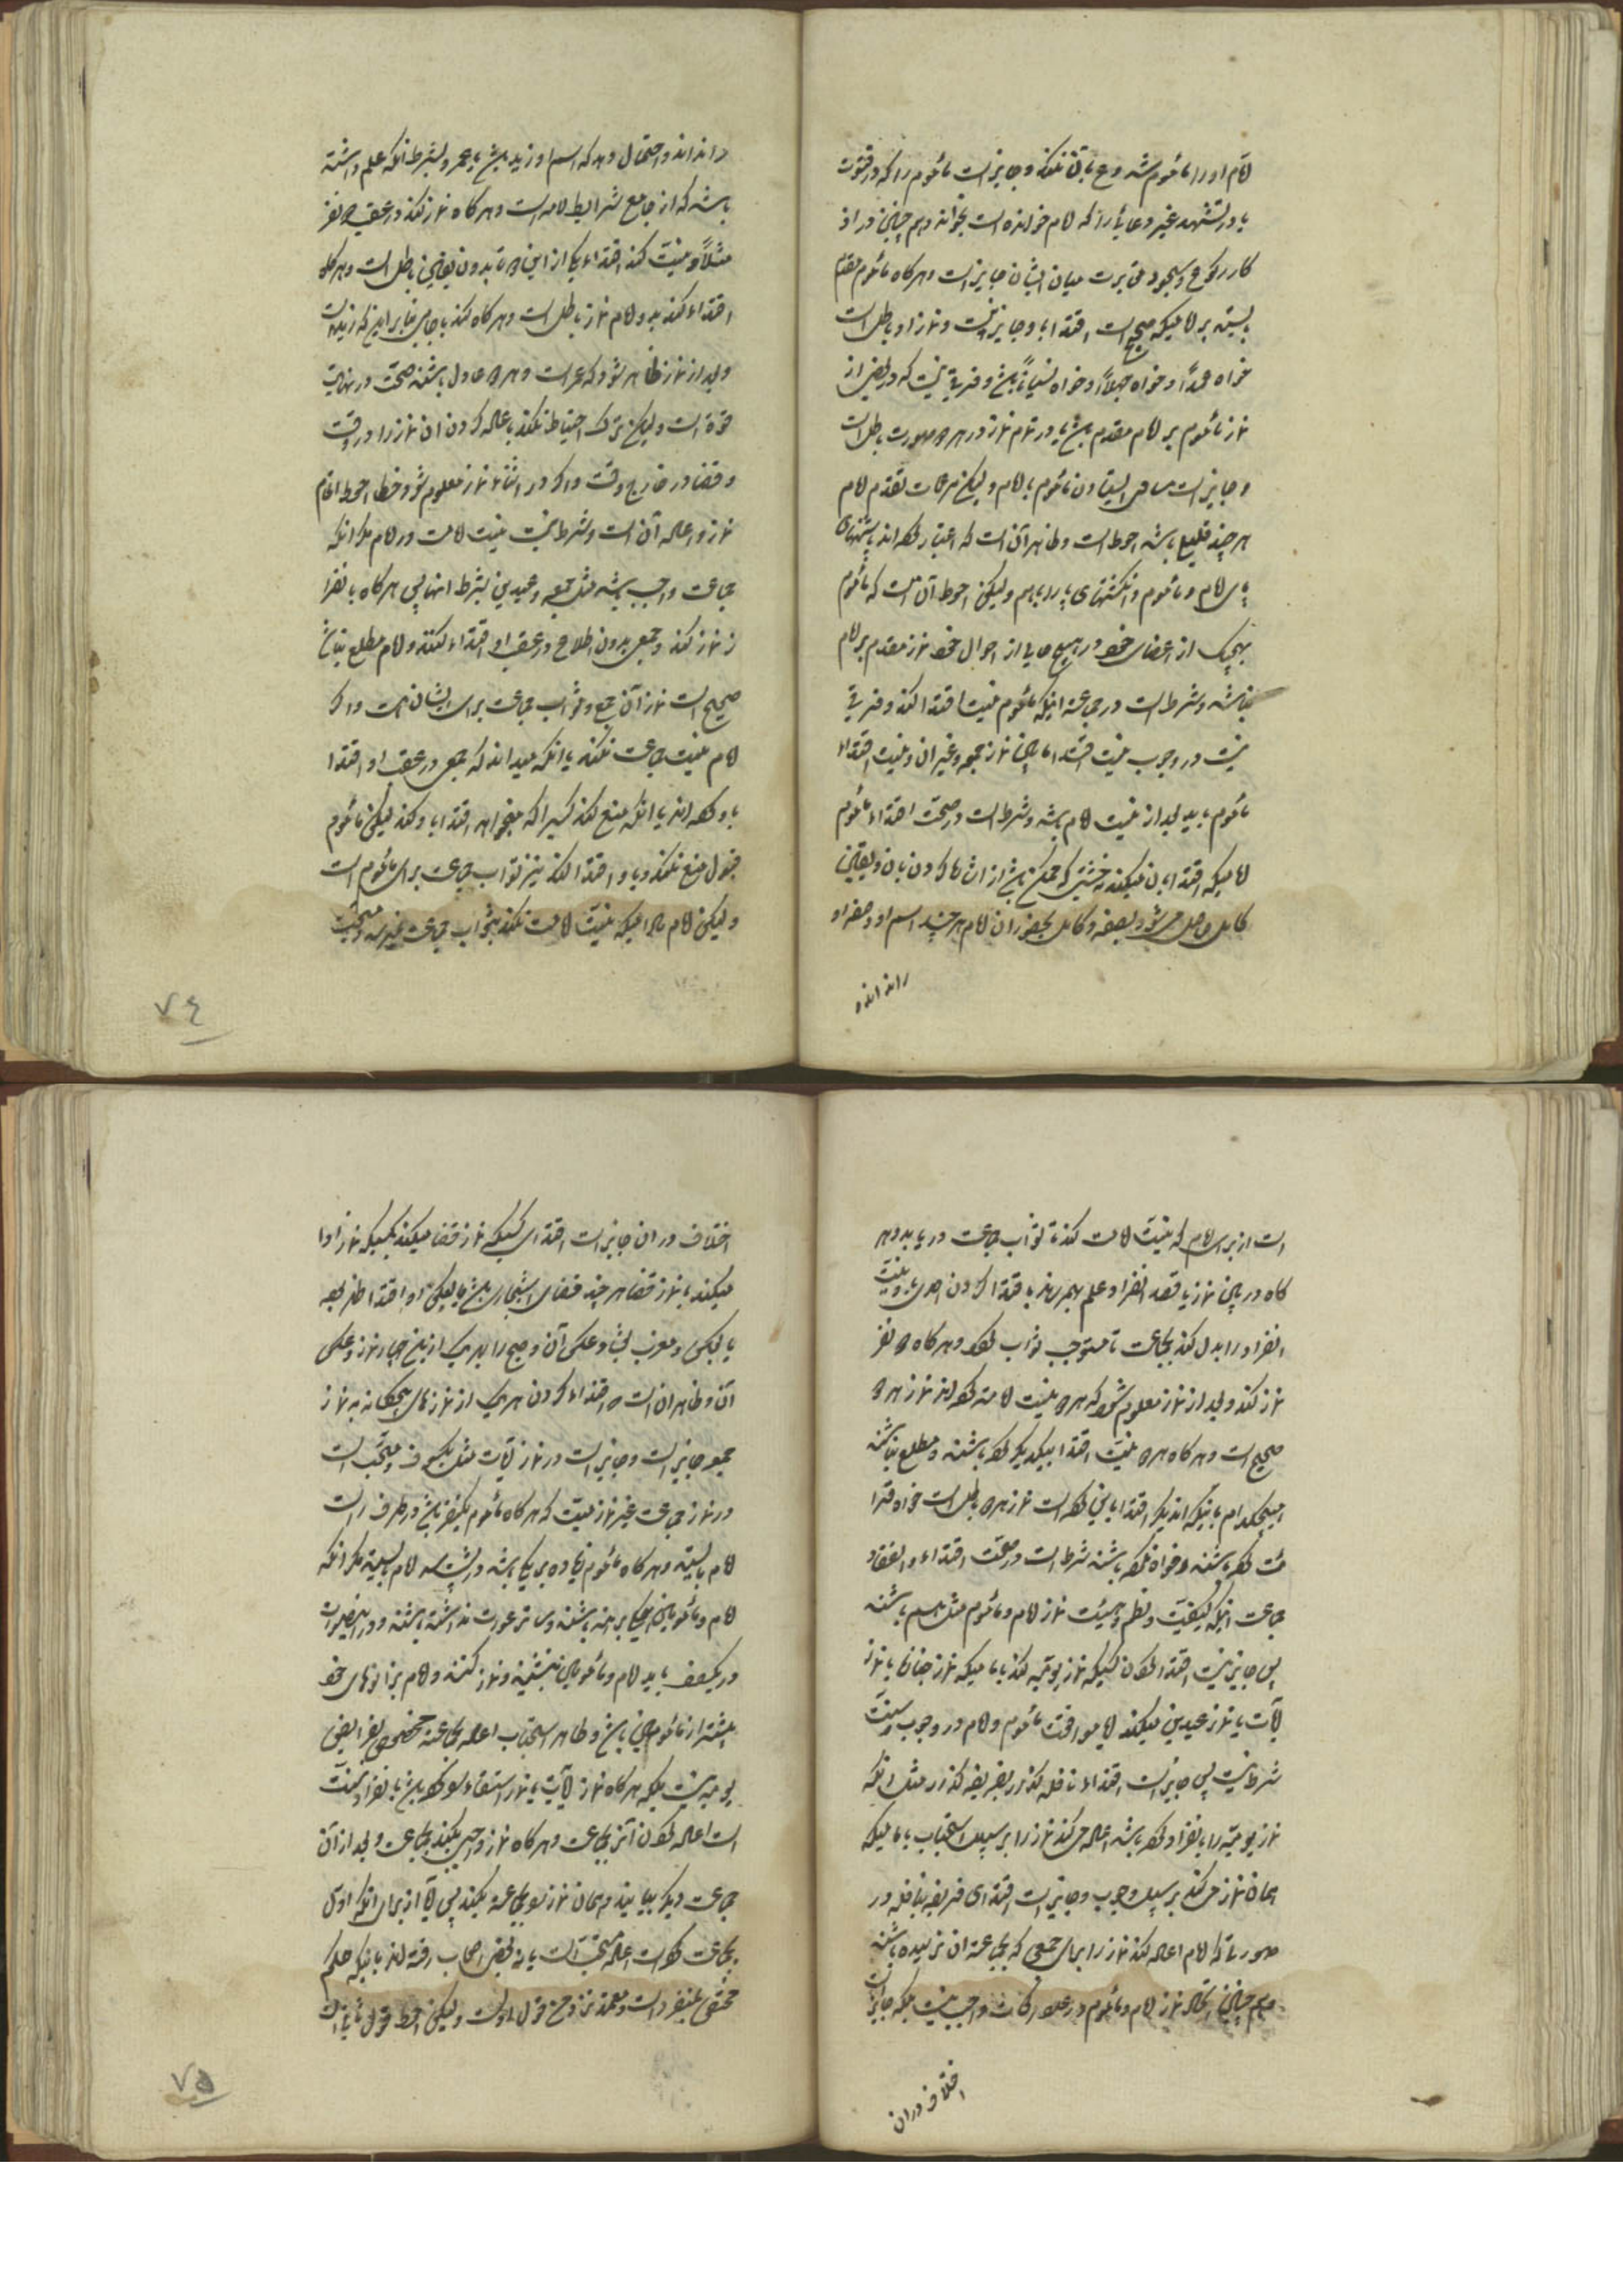 امام او را مأموم شد و ع باقی نکند و جایز است مأموم را که در قنوت
یا در تشهد غیر دعائی را که امام خوانده است بخواند و هم چنین در اذ
کار رکوع و سجود میان ایشان جایز است و هر کاه مأموم مقدم
بایستد بر امامیکه صحیح است اقتدا باو جایز نیست و نماز او باطل است
خواه عمداً و خواه جهلاً و خواه نسیاناً باشد و فرقی نیست که در بعض از
نماز مأموم بر امام مقدم باشد یا در تمام نماز و در هر دو صورت باطل است
و جایز است مساوی ایستادن مأموم با امام و لیکن مراعات تقدم امام
هر چند قلیل باشد احوط است و ظاهر آن است که اعتبار کرده اند پاشنهای
پای امام و مأموم و انکشتهای پا را باهم و لیکن احوط آن است که مأموم
بهیچیک از اعضای خود در هیچ حالی از احوال نماز مقدم بر امام
نباشد و شرط است در جماعت اینکه مأموم نیت اقتدا کند و فرقی
نیست در وجوب نیت اقتدا میان نماز جمعه و غیر آن و نیت اقتداء
مأموم باید بعد از نیت امام باشد و شرط است در صحت اقتداء مأموم
امامیکه اقتدا بآن میکند که ممکن باشد از اشاره کردن بآن و تعیین
کامل حاصل میشود بعضو و کامل بحضور آن امام هر چند اسم او و صفه او
را نداند و
را نداند و احتمال دهد که اسم او زید باشد یا عمرو بشرط آنکه علم داشته
باشد که او جامع شرایط امامه است و هر کاه نماز کند در عقب دو نفر
مثلاً و نیت کند اقتداء یکی از این دو تا بدون تعیین باطل است و هر کاه
اقتداء کند بدو امام نماز باطل است و هر کاه کند بامامی بنابر اینکه زید است
و بعد از نماز ظاهر شود که عمر است و هر دو عادل باشند صحت در نهایت
قوة است و لیکن ترک احتیاط نکند باعاده کردن آن نماز را در وقت
و قضا در خارج وقت و اکر در اثناء نماز معلوم شود خطا احوط اتمام
نماز و اعاده آن است و شرط نیست نیت امامت در امام مکر آنکه
جماعت واجب باشد مثل جمعه و عیدین بشرط انها پس هر کاه بانفرا
د نماز کند و جمعی بدون اطلاع در عقب او اقتداء کنند و امام مطلع نباشد
صحیح است نماز آن جمع و ثواب جماعت برای ایشان هست و اکر
امام نیت جماعت نکند با آنکه میداند که جمعی در عقب او اقتدا
باو کرده اند یا آنکه منع کند کسیرا که میخواهد اقتدا باو کند لیکن مأموم
قبول منع نکند و باو اقتدا کند نیز ثواب جماعت برای مأموم است
و لیکن امام مادامیکه نیت امامت نکند بثواب جماعت نمیرسد و مستحب
٧٤
است از برای امام که نیت امامت کند تا ثواب جماعت دریابد و هر
کاه در میان نماز با قصد انفراد علم بهم رساند باقتدا کردن احدی باو نیت
انفراد را بدل کند بجماعت تا مستوجب ثواب کردد و هر کاه دو نفر
نماز کند و بعد از نماز معلوم شود که هر دو نیت امامت کرده اند نماز هر دو
صحیح است و هر کاه هر دو نیت اقتدا بیکدیکر کرده باشند و مطلع نباشند
هیچکدام باینکه اندیکر اقتدا باین کرده است نماز هر دو باطل است خواه قرا
ئت کرده باشند و خواه نکرده باشند شرط است در صحت اقتداء و انعقاد
جماعت اینکه کیفیت و نظم و هیئت نماز امام و مأموم مثل هم باشند
پس جایز نیست اقتدا کردن کسیکه نماز یومیه کند بامامیکه نماز جنازه یا نماز
آیات یا نماز عیدین میکند اما موافقت مأموم و امام در وجوب و سنت
شرط نیست پس جایز است اقتداء نافله کذار بفریضه کذار مثل آنکه
نماز یومیه را بانفراد کرده باشد اعاده میکند نماز را بر سبیل استحباب بامامیکه
همان نماز میکند بر سبیل وجوب و جایز است اقتدای فریضه بنافله در
صورتیکه امام اعاده کند نماز را برای جمعی که بجماعت آن نرسیده باشند
و هم چنین اتحاد نماز امام و مأموم در عدد رکعات واجب نیست بلکه جایز است
اختلاف در آن
اختلاف در آن جایز است اقتدای کسیکه نماز قضا میکند بکسیکه نماز ادا
میکند یا نماز قضا هر چند قضای استیجاری باشد یا بعکس و اقتدا ظهر بعصر
یا بعکس و مغرب بعشا و عکس آن و صبح را بهر یک از پنج چهار نماز و عکس
آن و ظاهر آن است که اقتداء کردن هر یک از نمازهای پنجکانه به نماز
جمعه جایز است و جایز است در نماز آیات مثل کسوف و مستحب است
در نماز جماعت غیر نماز میت که هر کاه مأموم یکنفر باشد در طرف راست
امام بایستد و هر کاه مأموم زیاده بر یکی باشد در پشت سر امام بایستد مکر آنکه
امام و مأمومین همکی برهنه باشند و ساتر عورت نداشته باشند و در اینصورت
در یکصف باید امام و مأمومین بنشینند و نماز کنند و امام بزانوهای خود
پیشتر از مأمومین باشد و ظاهر استحباب اعاده بجماعة مخصوص بفرایض
یومیه نیست بلکه هر کاه نماز آیات یا نماز استسقاء کرده باشد بانفراد سنت
است اعاده کردن آنرا بجماعت و هر کاه نماز واجبی بکند بجماعت و بعد از آن
جماعت دیکر بیایند و همان نماز بجماعة بکنند پس آیا از برای آنکه اول
بجماعت کرده است اعاده مستحب است یا نه بعض اصحاب رفته اند باینکه حکم
مختص بمنفرد است و معتمد نزد من قول اول است و لیکن احوط قول ثانی است
٧٥